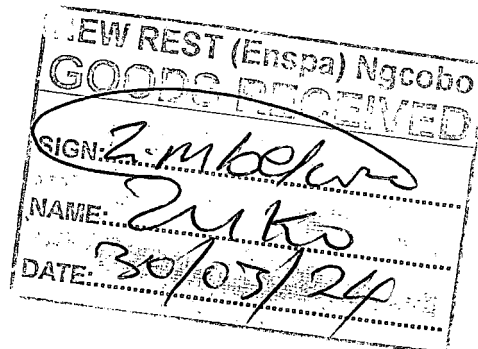 NEW REST (Enspa) Ngcobo
GOODS RECEIVED
SIGN: Z.mbekwa
NAME: Zuko
DATE: 30/03/24